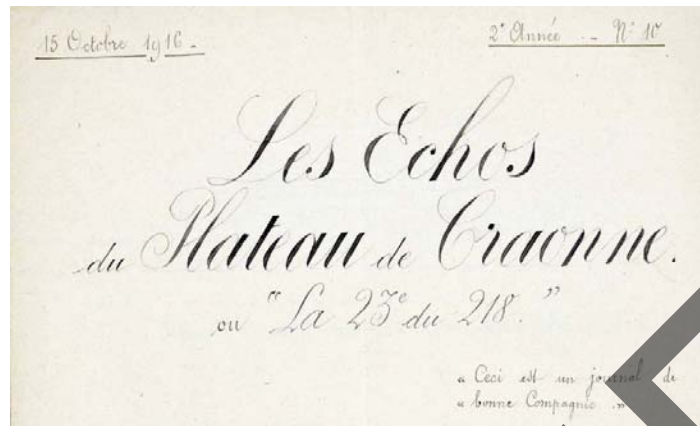 15 Octobre 1916 -
2e Année - - No 10
Les Echos
du Plateau de Craonne.
ou "La 23e du 218."
« Ceci est un journal de
« bonne Compagnie . »